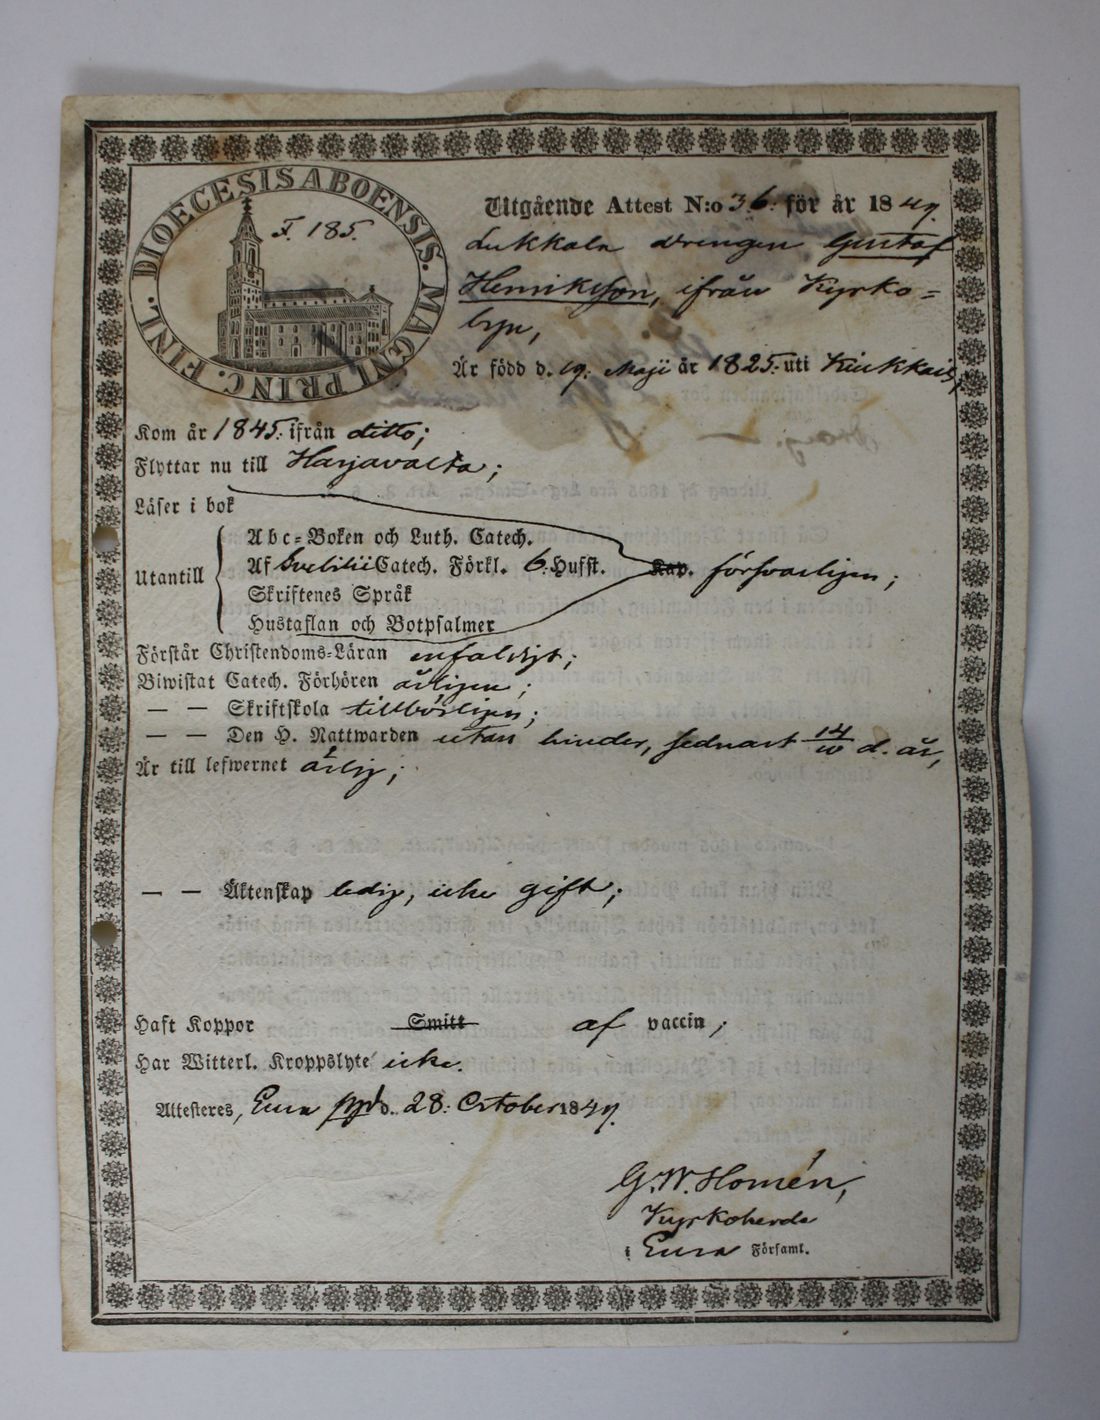 DIOECESIS ABOENSIS. MAGNI PRINC. FINL.
F. 185.
Utgående Attest N:o 36. för år 1847.
Lukkala drengen Gustaf
Henriksson, ifrån Kyrko=
byn,
Är född d. 19. Maji år 1825. uti Kiukkais,
Kom år 1845. ifrån ditto;
Flyttar nu till Harjavalta;
Läser i bok
Abc=Boken och Luth. Catech.
Utantill Af Svebilii Catech. Förkl. 6. Hufst. Kap. försvarligen;
Skriftenes Språk
Hustaflan och Botpsalmer
Förstår Christendoms=Läran enfaldigt;
Biwistat Catech. Förhören årligen;
— — Skriftskola tillbörligen;
— — Den H. Nattwarden utan hinder, sednast 14/10 d. år,
Är till lefwernet ärlig;
— — Äktenskap ledig, icke gift;
Haft Koppor Smitt af vaccin;
Har Witterl. Kroppslyte icke.
Attesteres, Eura d. 28. October 1847.
G. W. Homén,
Kyrkoherde
i Eura Församl.